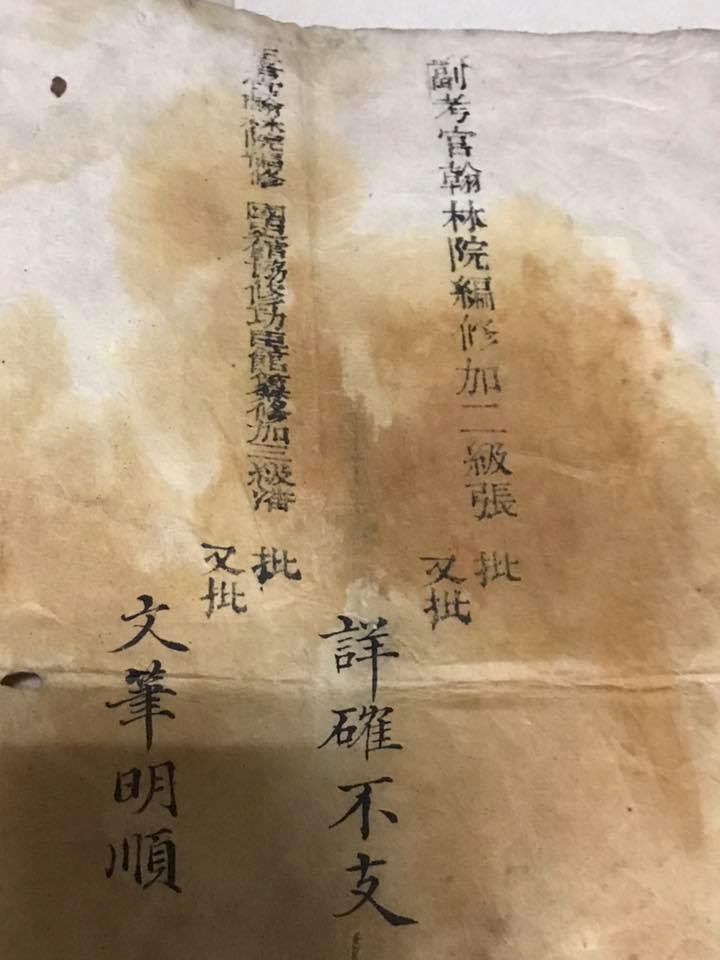 副考官翰林院編修加二級張
批
又批
詳確不支
翰林院編修 國史館協修功臣館纂修加三級潘
批
又批
文筆明順